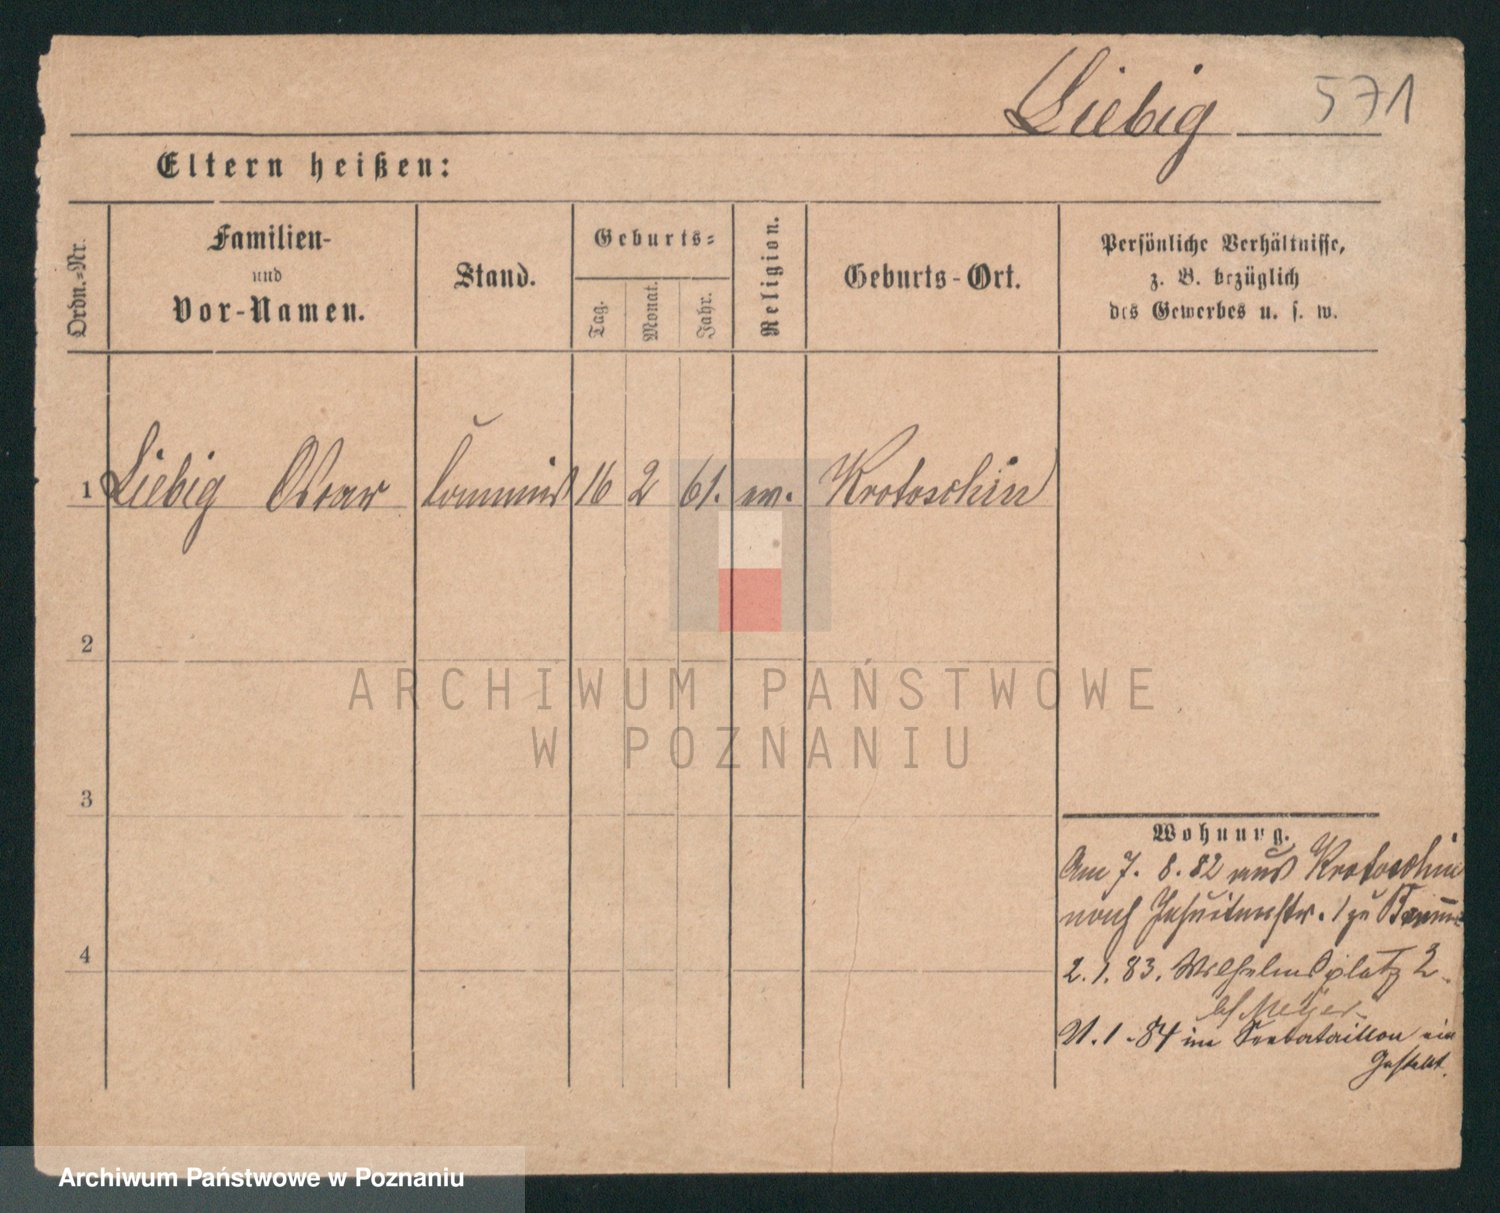 Liebig 571
Eltern heißen:
Ordn.-Nr.
Familien-
und
Vor-Namen.
Stand.
Geburts-
Tag.
Monat.
Jahr.
Religion.
Geburts-Ort.
Persönliche Verhältnisse,
z. B. bezüglich
des Gewerbes u. s. w.
1 Liebig Oscar Commis 16 2 61. ev. Krotoschin
2
3
4
Wohnung.
Am 7. 8. 82 aus Krotoschin
nach Jesuitenstr. 1 zu
2. 1. 83. Wilhelmsplatz 2
bei Meyer
1. 84 im Seebataillon ein
gestellt.
ARCHIWUM PAŃSTWOWE
W POZNANIU
Archiwum Państwowe w Poznaniu